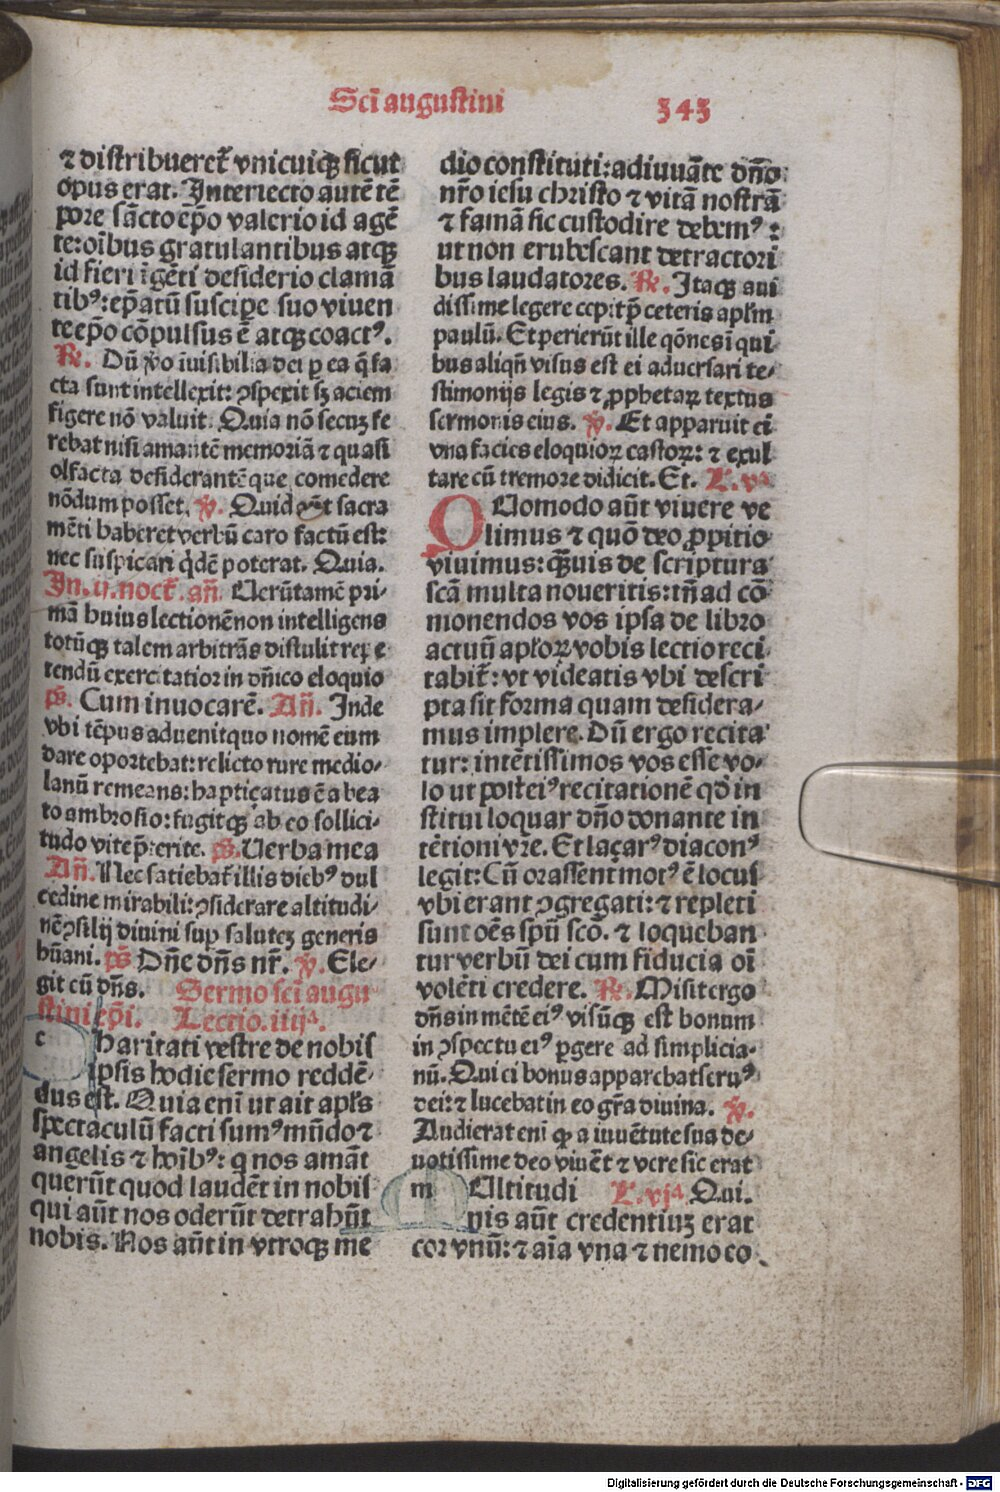 Scī augustini 343
⁊ distribueret᷑ vnicuiqꝫ sicut
opus erat. Interiecto autē tē
pore sācto ep̄o valerio id agē
te: oībus gratulantibus atqꝫ
id fieri īgēti desiderio clamā
tibꝰ: ep̄atū suscipe suo viuen
te ep̄o cōpulsus ē atqꝫ coactꝰ.
R̄. Dū ꝟo īuisibilia dei ꝑ ea q̄ fa
cta sunt intellexit: ꝯspexit sꝫ aciem
figere nō valuit. Quia nō secuꝫ fe
rebat nisi amantē memoriā ⁊ quasi
olfacta desiderantē que comedere
nōdum posset. ꝟ. Quid aūt sacra
mēti haberet verbū caro factū est:
nec suspicari q̇dē poterat. Quia.
In .ij. noct᷑. an̄. Uerūtamē pri-
mā huius lectionē non intelligens
totūqꝫ talem arbitrās distulit rep e
tendū exercitatior in dn̄ico eloquio
ps̄. Cum inuocarē. An̄. Inde
vbi tēpus aduenit quo nomē eum
dare oportebat: relicto rure medio-
lanū remeans: bapticatus ē a bea
to ambrosio: fugitqꝫ ab eo sollici-
tudo vite p̄terite. ps̄. Uerba mea
An̄. Nec satiebat᷑ illis diebꝰ dul
cedine mirabili: ꝯsiderare altitudi-
nē ꝯsilij diuini suꝑ saluteꝫ generis
hūani. ps̄ Dn̄e dn̄s nr̄. ꝟ. Ele-
git cū dn̄s. Sermo scī augu
stini ep̄i. Lectio .iiijᵃ.
c haritati vestre de nobis
ipsis hodie sermo reddē-
dus est. Quia enī ut ait apl̄s
spectaculū facti sumꝰ mūdo ⁊
angelis ⁊ hoībꝰ: q nos amāt
querūt quod laudēt in nobis
qui aūt nos oderūt detrahūt
nobis. Nos aūt in vtroqꝫ me
dio constituti: adiuuāte dn̄o
nr̄o iesu christo ⁊ vitā nostrā
⁊ famā sic custodire debemꝰ:
ut non erubescant detractori
bus laudatores. R̄. Itaqꝫ aui
dissime legere cepit p̄ ceteris apl̄m
paulū. Et perierūt ille q̄ōnes ī qui
bus aliqn̄ visus est ei aduersari te-
stimonijs legis ⁊ ꝓphetaꝝ textus
sermonis eius. ꝟ. Et apparuit ei
vna facies eloquioꝝ castoꝝ: ⁊ exul
tare cū tremore didicit. Et. L. vᵃ
QUomodo aūt viuere ve
limus ⁊ quō deo ꝓpitio
viuimus: qꝫuis de scriptura
scā multa noueritis: tn̄ ad cō
monendos vos ipsa de libro
actuū apl̄oꝝ vobis lectio reci
tabit᷑: vt videatis vbi descri
pta sit forma quam desidera-
mus implere. Dū ergo recita
tur: intētissimos vos esse vo-
lo ut post eiꝰ recitationē qd̄ in
stitui loquar dn̄o donante in
tētioni vr̄e. Et laçarꝰ diaconꝰ
legit: Cū orassent motꝰ ē locus
vbi erant ꝯgregati: ⁊ repleti
sunt oēs spū scō. ⁊ loqueban
tur verbū dei cum fiducia oī
volēti credere. R̄. Misit ergo
dn̄s in mētē eiꝰ visūqꝫ est bonum
in ꝯspectu eiꝰ ꝑgere ad simplicia-
nū. Qui ei bonus apparebat seruꝰ
dei: ⁊ lucebat in eo gr̄a diuina. ꝟ.
Audierat enī ꝙ a iuuētute sua de-
uotissime deo viuēt ⁊ vere sic erat
m Altitudi L. vjᵃ. Qui.
nis aūt credentiuꝫ erat
cor vnū: ⁊ aīa vna ⁊ nemo eo
Digitalisierung gefördert durch die Deutsche Forschungsgemeinschaft - DFG